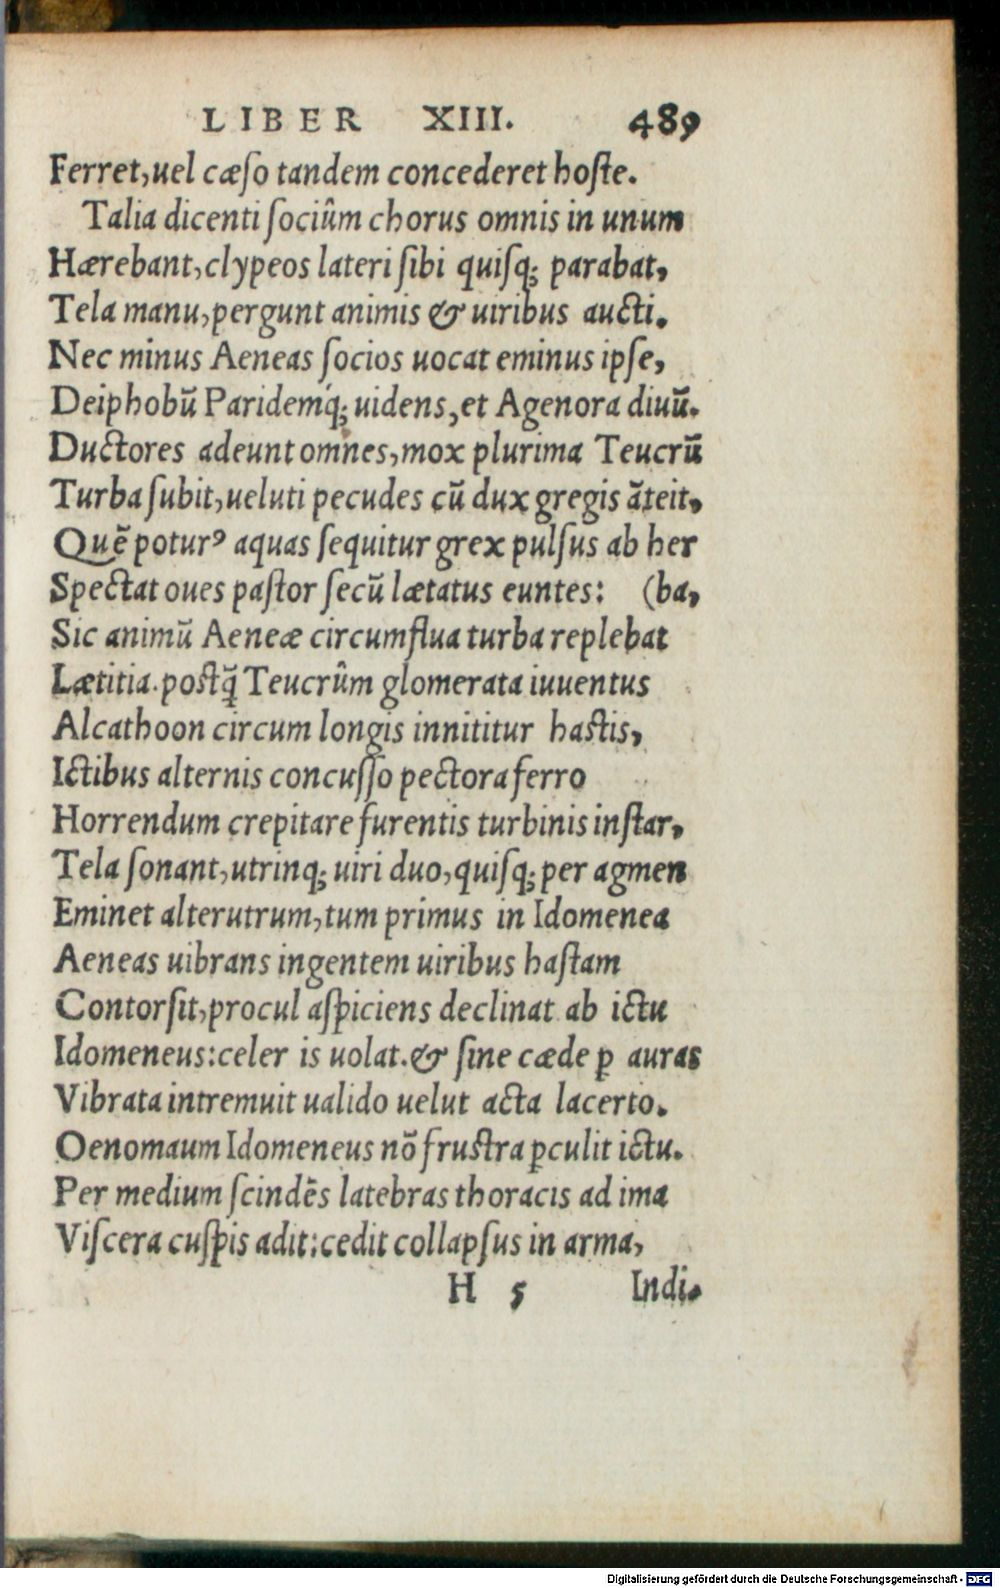 LIBER XIII. 489
Ferret, uel cæſo tandem concederet hoſte.
Talia dicenti ſociûm chorus omnis in unum
Hærebant, clypeos lateri ſibi quiſq; parabat,
Tela manu, pergunt animis & uiribus aucti.
Nec minus Aeneas ſocios uocat eminus ipſe,
Deiphobū Paridemq́; uidens, et Agenora diuū.
Ductores adeunt omnes, mox plurima Teucrū
Turba ſubit, ueluti pecudes cū dux gregis āteit,
Quē poturꝰ aquas ſequitur grex pulſus ab her
Spectat oues paſtor ſecū lætatus euntes: (ba,
Sic animū Aeneæ circumflua turba replebat
Lætitia. poſtq̄ Teucrûm glomerata iuuentus
Alcathoon circum longis innititur haſtis,
Ictibus alternis concuſſo pectora ferro
Horrendum crepitare furentis turbinis inſtar,
Tela ſonant, utrinq; uiri duo, quiſq; per agmen
Eminet alterutrum, tum primus in Idomenea
Aeneas uibrans ingentem uiribus haſtam
Contorſit, procul aſpiciens declinat ab ictu
Idomeneus: celer is uolat. & ſine cæde ꝑ auras
Vibrata intremuit ualido uelut acta lacerto.
Oenomaum Idomeneus nō fruſtra ꝑculit ictu.
Per medium ſcindēs latebras thoracis ad ima
Viſcera cuſpis adit: cedit collapſus in arma,
H 5 Indi.
Digitalisierung gefördert durch die Deutsche Forschungsgemeinschaft - DFG